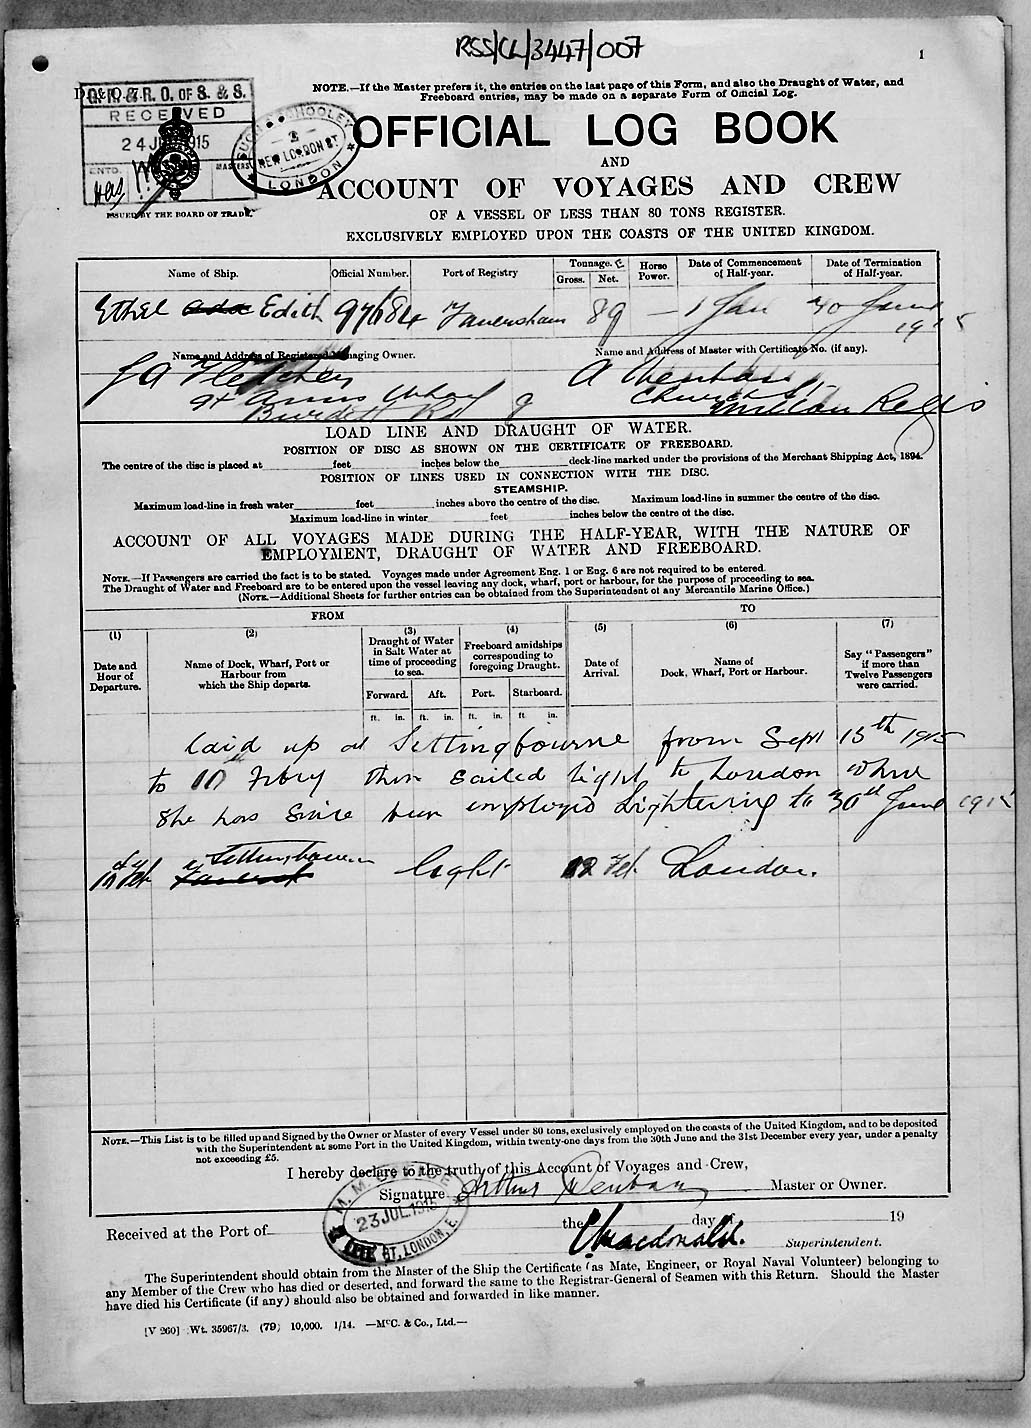 RSS/CL/3447/007
1
NOTE.—If the Master prefers it, the entries on the last page of this Form, and also the Draught of Water, and
Freeboard entries, may be made on a separate Form of Official Log.
G. R. & R. O. OF S. & S.
RECEIVED
24 JUL 1915
ENTD.
MASTERS
ISSUED BY THE BOARD OF TRADE.
NEW LONDON ST.
LONDON
OFFICIAL LOG BOOK
AND
ACCOUNT OF VOYAGES AND CREW
OF A VESSEL OF LESS THAN 80 TONS REGISTER.
EXCLUSIVELY EMPLOYED UPON THE COASTS OF THE UNITED KINGDOM.
Name of Ship. Official Number. Port of Registry Tonnage. Gross. Net. Horse Power. Date of Commencement of Half-year. Date of Termination of Half-year.
Ethel Ada Edith 97684 Faversham 89 — 1 Jan 30 June
1915
Name and Address of Registered Managing Owner. Name and Address of Master with Certificate No. (if any).
J A Fletcher A
St Anns Wharf Church St
Burdett Rd Milton Regis
LOAD LINE AND DRAUGHT OF WATER.
POSITION OF DISC AS SHOWN ON THE CERTIFICATE OF FREEBOARD.
The centre of the disc is placed at feet inches below the deck-line marked under the provisions of the Merchant Shipping Act, 1894.
POSITION OF LINES USED IN CONNECTION WITH THE DISC.
STEAMSHIP.
Maximum load-line in fresh water feet inches above the centre of the disc. Maximum load-line in summer the centre of the disc.
Maximum load-line in winter feet inches below the centre of the disc.
ACCOUNT OF ALL VOYAGES MADE DURING THE HALF-YEAR, WITH THE NATURE OF
EMPLOYMENT, DRAUGHT OF WATER AND FREEBOARD.
NOTE.—If Passengers are carried the fact is to be stated. Voyages made under Agreement Eng. 1 or Eng. 6 are not required to be entered.
The Draught of Water and Freeboard are to be entered upon the vessel leaving any dock, wharf, port or harbour, for the purpose of proceeding to sea.
(NOTE.—Additional Sheets for further entries can be obtained from the Superintendent of any Mercantile Marine Office.)
FROM TO
(1) (2) (3) (4) (5) (6) (7)
Date and Hour of Departure. Name of Dock, Wharf, Port or Harbour from which the Ship departs. Draught of Water in Salt Water at time of proceeding to sea. Freeboard amidships corresponding to foregoing Draught. Date of Arrival. Name of Dock, Wharf, Port or Harbour. Say "Passengers" if more than Twelve Passengers were carried.
Forward. Aft. Port. Starboard.
ft. in. ft. in. ft. in. ft. in.
Laid up at Sittingbourne from Sept 15th 1915
to 10 Febry then sailed light to London where
she has since been employed Lightering to 30th June 1915
10 Feb Sittingbourne light 12 Feb London.
NOTE.—This List is to be filled up and Signed by the Owner or Master of every Vessel under 80 tons, exclusively employed on the coasts of the United Kingdom, and to be deposited
with the Superintendent at some Port in the United Kingdom, within twenty-one days from the 30th June and the 31st December every year, under a penalty
not exceeding £5.
I hereby declare to the truth of this Account of Voyages and Crew,
Signature Arthur Master or Owner.
M. M. OFFICE
23 JUL 1915
ST. LONDON, E.
Received at the Port of the day of 19
Macdonald. Superintendent.
The Superintendent should obtain from the Master of the Ship the Certificate (as Mate, Engineer, or Royal Naval Volunteer) belonging to
any Member of the Crew who has died or deserted, and forward the same to the Registrar-General of Seamen with this Return. Should the Master
have died his Certificate (if any) should also be obtained and forwarded in like manner.
[V 260] Wt. 35967/3. (79) 10,000. 1/14. —McC. & Co., Ltd.—